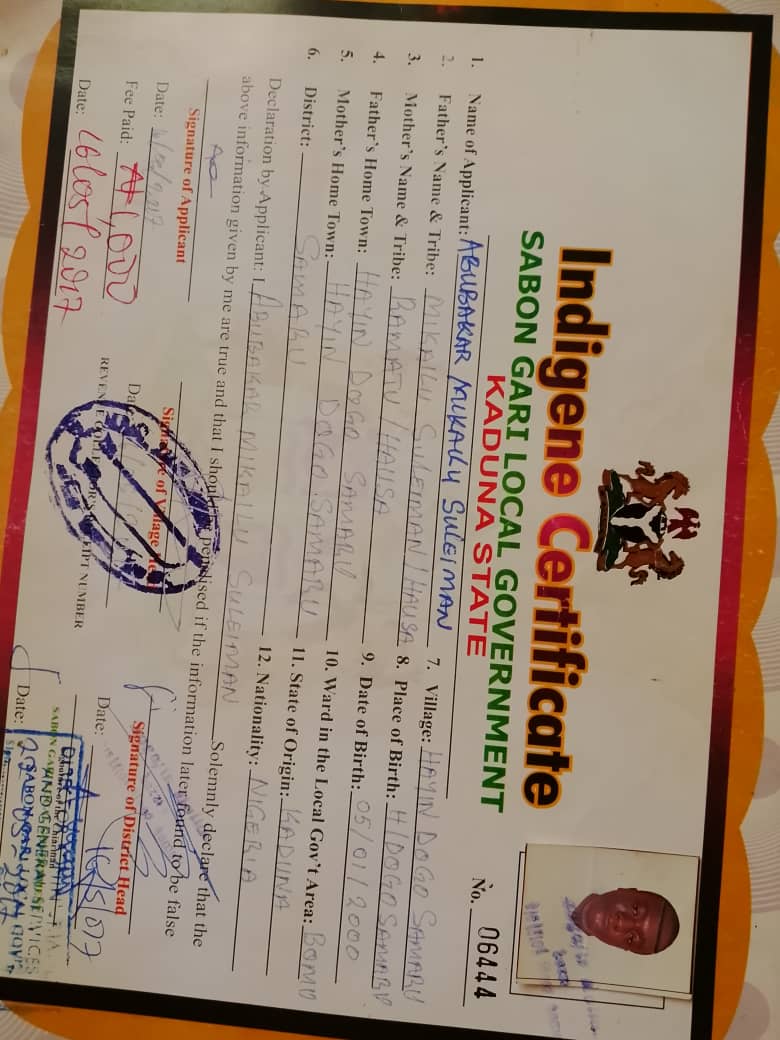 Indigene Certificate
SABON GARI LOCAL GOVERNMENT
KADUNA STATE
No. 06444
1. Name of Applicant: ABUBAKAR MIKAILU SULEIMAN
2. Father's Name & Tribe: MIKAILU SULEIMAN / HAUSA
3. Mother's Name & Tribe: RAMATU / HAUSA
4. Father's Home Town: HAYIN DOGO SAMARU
5. Mother's Home Town: HAYIN DOGO SAMARU
6. District: SAMARU
7. Village: HAYIN DOGO SAMARU
8. Place of Birth: H/DOGO SAMARU
9. Date of Birth: 05/01/2000
10. Ward in the Local Gov't Area: BOMO
11. State of Origin: KADUNA
12. Nationality: NIGERIA
Declaration by Applicant: I, ABUBAKAR MIKAILU SULEIMAN Solemnly declare that the
above information given by me are true and that I should be penalised if the information later found to be false
Signature of Applicant
Date:
Signature of Village Head
Date:
Signature of District Head
Date:
Fee Paid: ₦1,000
Date: 16/05/2017
REVENUE COLLECTOR'S RECEIPT NUMBER
Date: